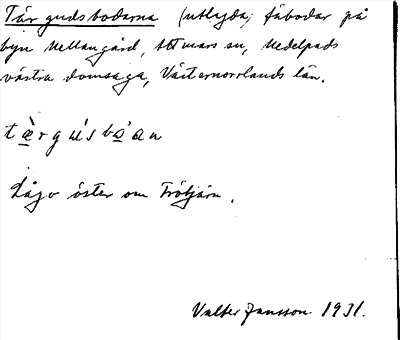 Tärgudsbodarna (utlagda) fäbodar på
byn Mellangård, Attmars sn, Medelpads
västra domsaga, Västernorrlands län.
tæ̀rgu's bo̊'a n
Lågo öster om Frötjärn.
Valter Jansson 1931.